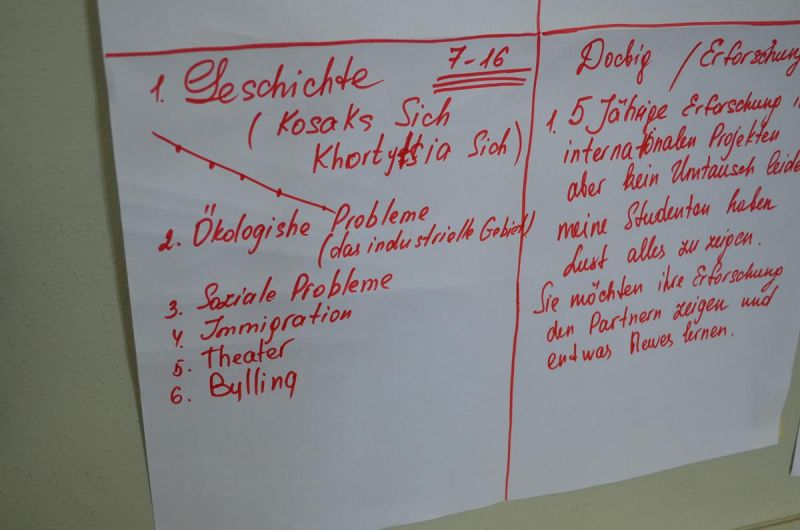 7-16
1. Geschichte
(Kosaks Sich
Khortytsia Sich)
2. Ökologishe Probleme
(das industrielle Gebiet)
3. Soziale Probleme
4. Immigration
5. Theater
6. Bylling
Docbig / Erforschung
1. 5 Jährige Erforschung
internationalen Projekten
aber kein Umtausch leider
meine Studenton haben
Lust alles zu zeigen.
Sie möchten ihre Erforschung
den Partnern zeigen und
entwas Neues lernen.